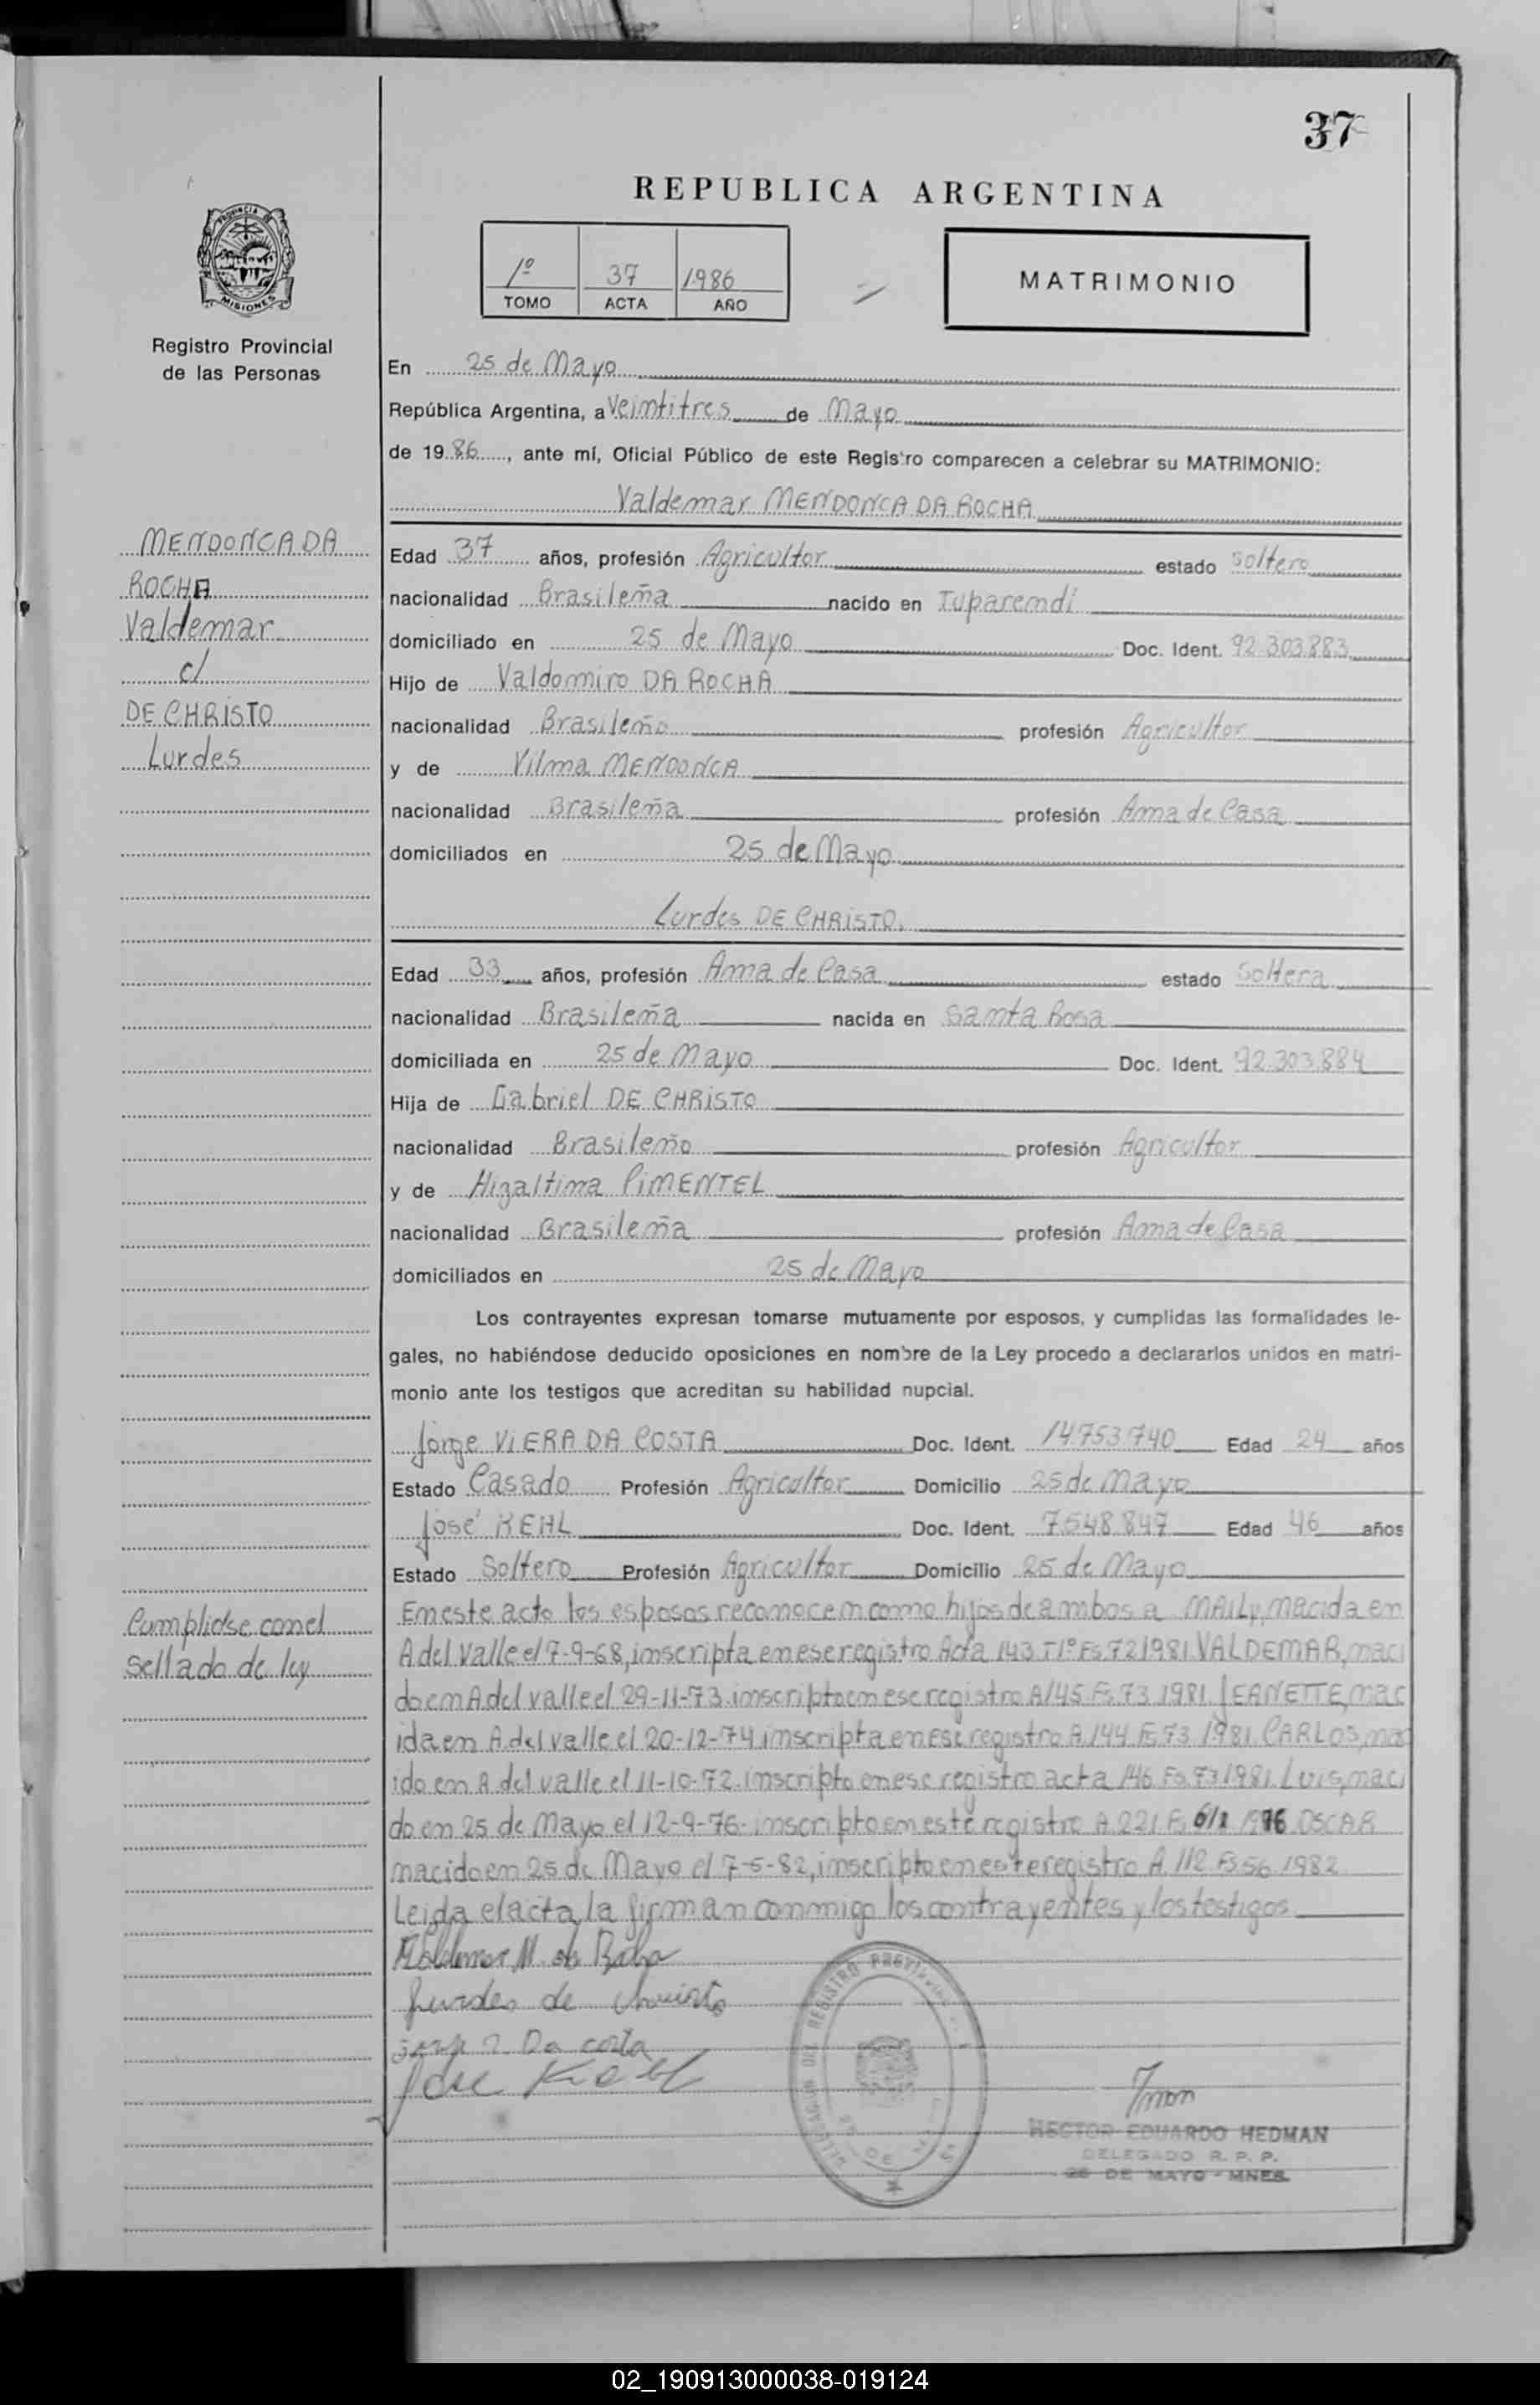 37
REPUBLICA ARGENTINA
1º 37 1986
TOMO ACTA AÑO
MATRIMONIO
PROVINCIA DE
MISIONES
Registro Provincial
de las Personas
En 25 de Mayo
República Argentina, a Veintitres de Mayo
de 1986, ante mí, Oficial Público de este Registro comparecen a celebrar su MATRIMONIO:
Valdemar MENDONCA DA ROCHA
MENDONCA DA
ROCHA
Valdemar
c/
DE CHRISTO
Lurdes
Edad 37 años, profesión Agricultor estado Soltero
nacionalidad Brasileña nacido en Tuparendi
domiciliado en 25 de Mayo Doc. Ident. 92.303.883
Hijo de Valdomiro DA ROCHA
nacionalidad Brasileño profesión Agricultor
y de Vilma MENDONCA
nacionalidad Brasileña profesión Ama de Casa
domiciliados en 25 de Mayo
Lurdes DE CHRISTO.
Edad 33 años, profesión Ama de Casa estado Soltera
nacionalidad Brasileña nacida en Santa Rosa
domiciliada en 25 de Mayo Doc. Ident. 92.303.884
Hija de Gabriel DE CHRISTO
nacionalidad Brasileño profesión Agricultor
y de Hizaltina PIMENTEL
nacionalidad Brasileña profesión Ama de Casa
domiciliados en 25 de Mayo
Los contrayentes expresan tomarse mutuamente por esposos, y cumplidas las formalidades le-
gales, no habiéndose deducido oposiciones en nombre de la Ley procedo a declararlos unidos en matri-
monio ante los testigos que acreditan su habilidad nupcial.
Jorge VIERA DA COSTA Doc. Ident. 14.753.740 Edad 24 años
Estado Casado Profesión Agricultor Domicilio 25 de Mayo
José KEHL Doc. Ident. 7.548.847 Edad 46 años
Estado Soltero Profesión Agricultor Domicilio 25 de Mayo
Cumplidse con el
sellado de ley
En este acto los esposos reconocen como hijos de ambos a MAILy, nacida en
A del Valle el 7-9-68, inscripta en ese registro Acta 143 T1º Fs 72 1981 VALDEMAR, naci
do en A del valle el 29-11-73 inscripto en ese registro A/45 Fs 73 1981 JEANETTE, nac
ida en A. del valle el 20-12-74 inscripta en ese registro A.144 Fs 73 1981 CARLOS, nac
ido en A. del valle el 11-10-72. inscripto en ese registro acta 146 Fs 73 1981 Luis, naci
do en 25 de Mayo el 12-9-76- inscripto en este registro A 221 Fs 1976 OSCAR
nacido en 25 de Mayo el 7-5-82, inscripto en este registro A. 112 Fs 56 1982
Leida el acta, la firman conmigo los contrayentes y los testigos
Valdemar M. da Rocha
Lurdes de Christo
Jorge Da costa
Jose Kehl
DELEGACION DEL REGISTRO
25 DE
HECTOR EDUARDO HEDMAN
DELEGADO R. P. P.
25 DE MAYO - MNES.
02_190913000038-019124